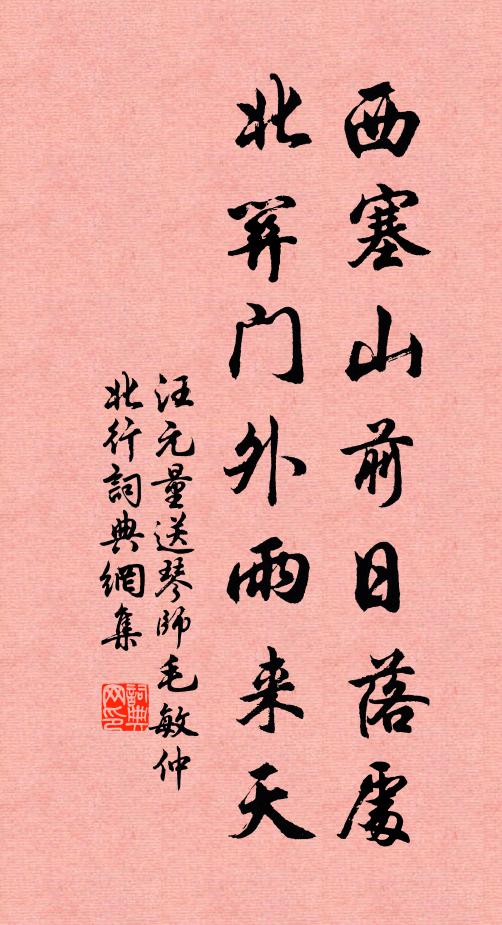 西塞山前日落處
北关门外雨来天
汪元量送琴師毛敏仲
北行詞典網集
詞典
网印